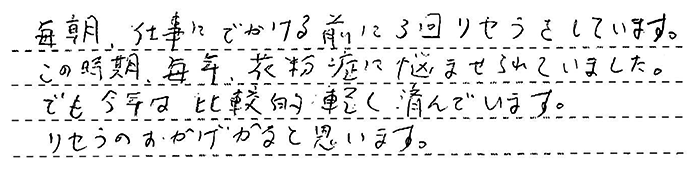 毎朝、仕事にでかける前に3回リセラをしています。
この時期、毎年、花粉症に悩ませられていました。
でも今年は比較的軽く済んでいます。
リセラのおかげかなと思います。